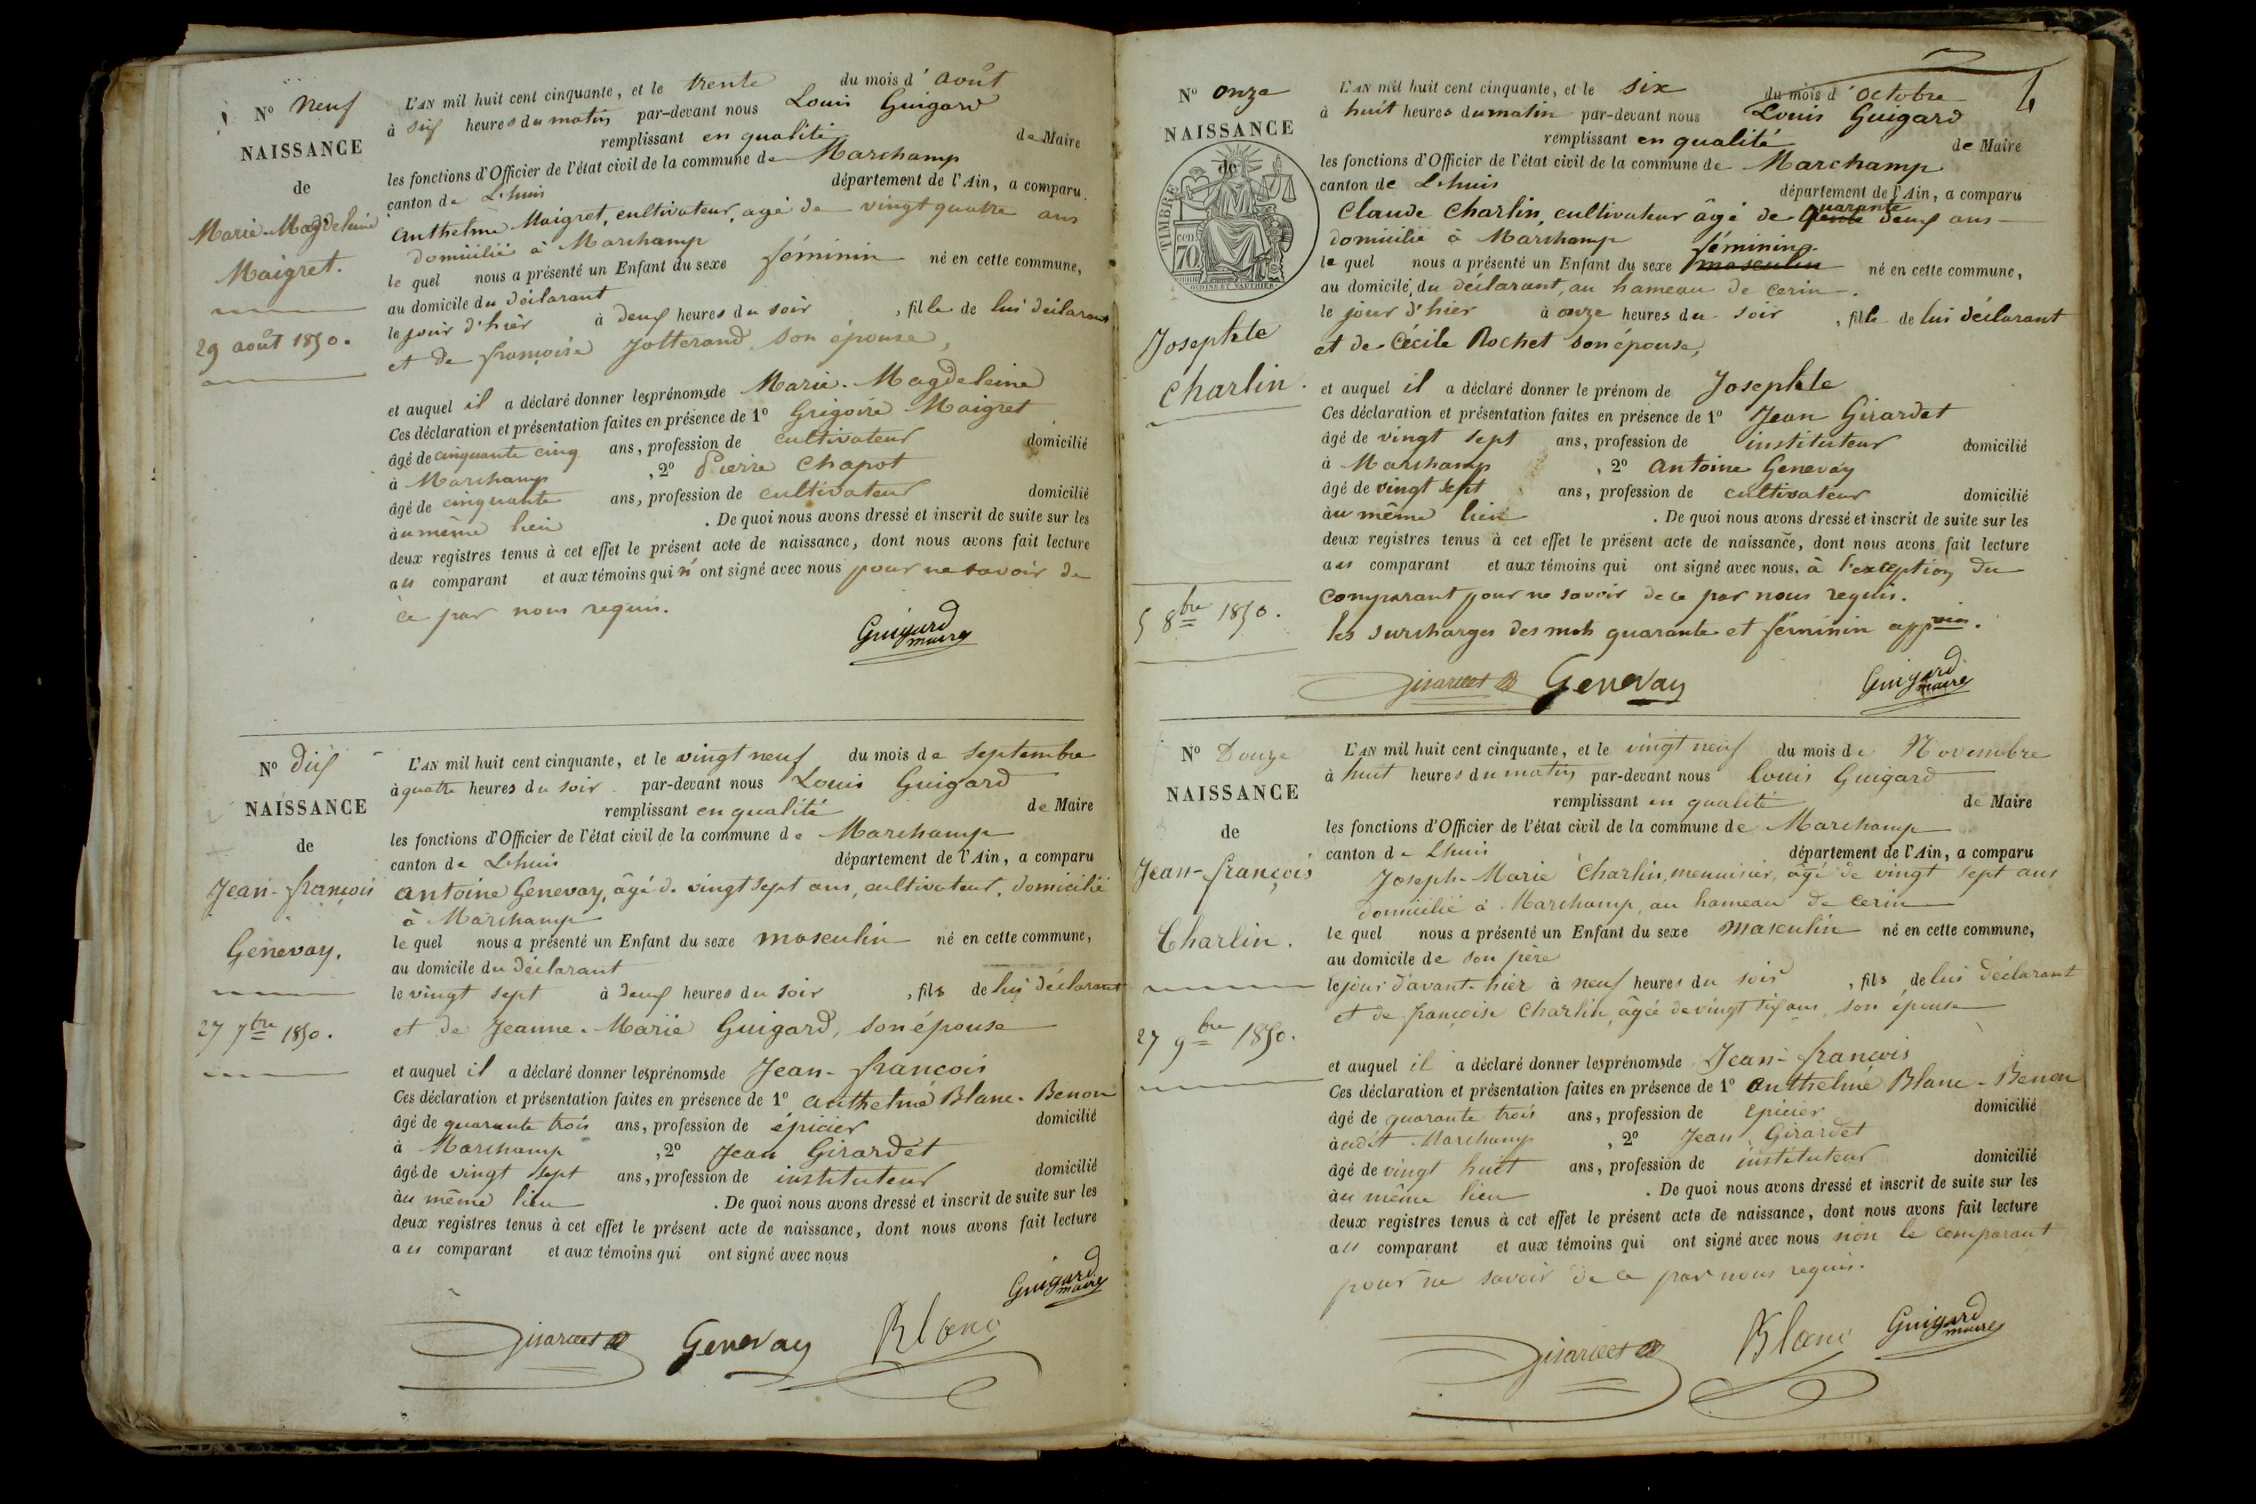 N° neuf
NAISSANCE
de
Marie-Magdeleine
Maigret.
29 août 1850.
L'AN mil huit cent cinquante, et le trente du mois d'août
à six heures du matin par-devant nous Louis Guigard
remplissant en qualité de Maire
les fonctions d'Officier de l'état civil de la commune de Marchamp
canton de Lhuis département de l'Ain, a comparu
Anthelme Maigret, cultivateur, agé de vingt quatre ans
domicilié à Marchamp
le quel nous a présenté un Enfant du sexe féminin né en cette commune,
au domicile du déclarant
le jour d'hier à deux heures du soir, fille de lui déclarant
et de françoise Jotterand son épouse,
et auquel il a déclaré donner les prénoms de Marie-Magdeleine
Ces déclaration et présentation faites en présence de 1° Grégoire Maigret
âgé de cinquante cinq ans, profession de cultivateur domicilié
à Marchamp, 2° Pierre Chapot
âgé de cinquante ans, profession de cultivateur domicilié
à u même lieu. De quoi nous avons dressé et inscrit de suite sur les
deux registres tenus à cet effet le présent acte de naissance, dont nous avons fait lecture
au comparant et aux témoins qui n'ont signé avec nous pour ne savoir de
ce par nous requis.
Guigard
maire
N° dix
NAISSANCE
de
Jean-françois
Genevay.
27 7bre 1850.
L'AN mil huit cent cinquante, et le vingt neuf du mois de septembre
à quatre heures du soir par-devant nous Louis Guigard
remplissant en qualité de Maire
les fonctions d'Officier de l'état civil de la commune de Marchamp
canton de Lhuis département de l'Ain, a comparu
antoine Genevay, âgé de vingt sept ans, cultivateur, domicilié
à Marchamp
le quel nous a présenté un Enfant du sexe masculin né en cette commune,
au domicile du déclarant
le vingt sept à deux heures du soir, fils de lui déclarant
et de Jeanne-Marie Guigard, son épouse
et auquel il a déclaré donner les prénoms de Jean-françois
Ces déclaration et présentation faites en présence de 1° anthelme Blanc-Benon
âgé de quarante trois ans, profession de épicier domicilié
à Marchamp, 2° Jean Girardet
âgé de vingt sept ans, profession de instituteur domicilié
àu même lieu. De quoi nous avons dressé et inscrit de suite sur les
deux registres tenus à cet effet le présent acte de naissance, dont nous avons fait lecture
au comparant et aux témoins qui ont signé avec nous
Guigard
maire
Girardet Genevay Blanc
N° onze
NAISSANCE
de
TIMBRE
70
Josephte
Charlin.
5 8bre 1850.
L'AN mil huit cent cinquante, et le six du mois d'octobre
à huit heures du matin par-devant nous Louis Guigard
remplissant en qualité de Maire
les fonctions d'Officier de l'état civil de la commune de Marchamp
canton de Lhuis département de l'Ain, a comparu
Claude Charlin, cultivateur âgé de quarante deux ans
domicilié à Marchamp féminin
le quel nous a présenté un Enfant du sexe masculin né en cette commune,
au domicile, du déclarant, au hameau de cerin.
le jour d'hier à onze heures du soir, fille de lui déclarant
et de Cécile Rochet son épouse,
et auquel il a déclaré donner le prénom de Josephte
Ces déclaration et présentation faites en présence de 1° Jean Girardet
âgé de vingt sept ans, profession de instituteur domicilié
à Marchamp, 2° antoine Genevay
âgé de vingt sept ans, profession de cultivateur domicilié
àu même lieu. De quoi nous avons dressé et inscrit de suite sur les
deux registres tenus à cet effet le présent acte de naissance, dont nous avons fait lecture
au comparant et aux témoins qui ont signé avec nous. à l'exception du
comparant pour ne savoir de ce par nous requis.
les surcharges des mots quarante et féminin appvées.
Girardet Genevay Guigard
maire
N° Douze
NAISSANCE
de
Jean-françois
Charlin.
27 9bre 1850.
L'AN mil huit cent cinquante, et le vingt neuf du mois de Novembre
à huit heures du matin par-devant nous Louis Guigard
remplissant en qualité de Maire
les fonctions d'Officier de l'état civil de la commune de Marchamp
canton de Lhuis département de l'Ain, a comparu
Joseph-Marie Charlin, menuisier, âgé de vingt sept ans
domicilié à Marchamp, au hameau de cerin
le quel nous a présenté un Enfant du sexe masculin né en cette commune,
au domicile de son père
le jour d'avant-hier à neuf heures du soir, fils de lui déclarant
et de françoise Charlin, âgée de vingt six ans, son épouse
et auquel il a déclaré donner les prénoms de Jean-françois
Ces déclaration et présentation faites en présence de 1° anthelme Blanc-Benon
âgé de quarante trois ans, profession de Epicier domicilié
àudit Marchamp, 2° Jean Girardet
âgé de vingt huit ans, profession de instituteur domicilié
àu même lieu. De quoi nous avons dressé et inscrit de suite sur les
deux registres tenus à cet effet le présent acte de naissance, dont nous avons fait lecture
au comparant et aux témoins qui ont signé avec nous non le comparant
pour ne savoir de ce par nous requis.
Girardet Blanc Guigard
maire